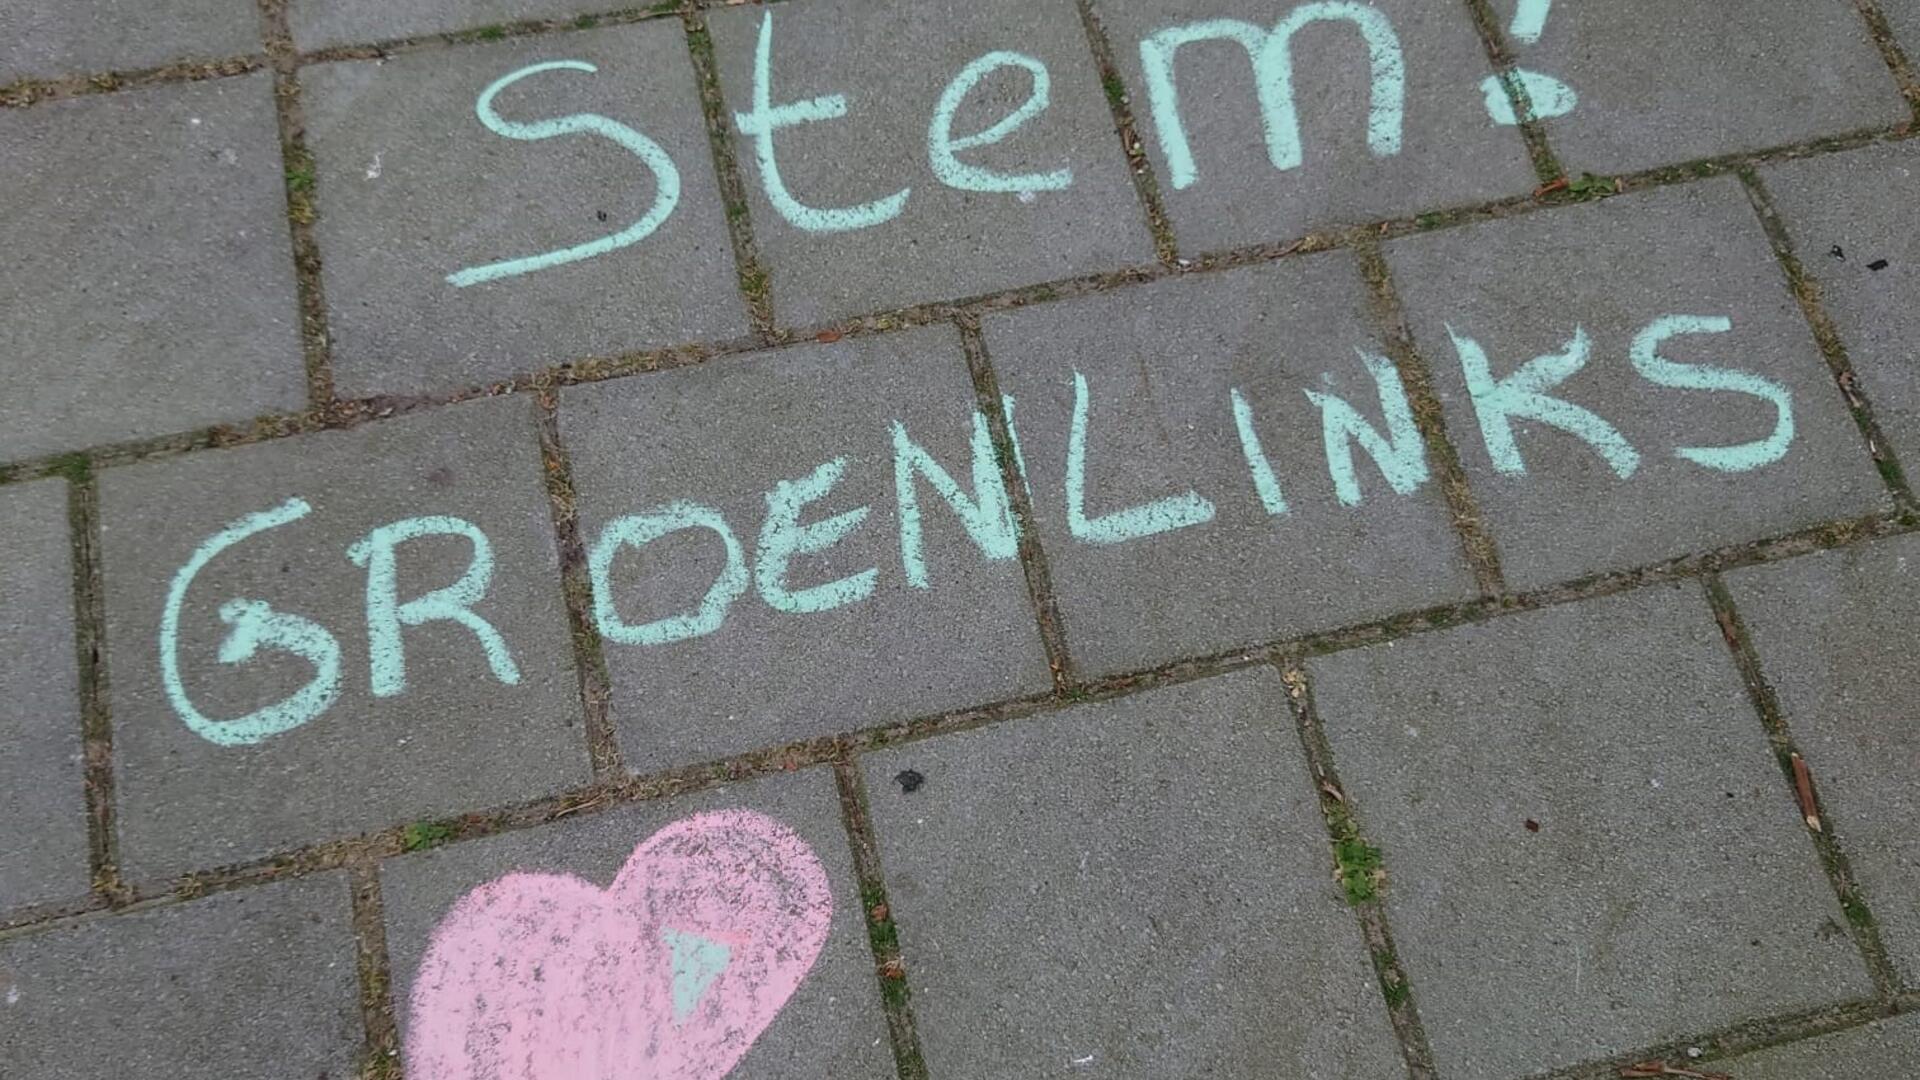 Stem!
GROENLINKS